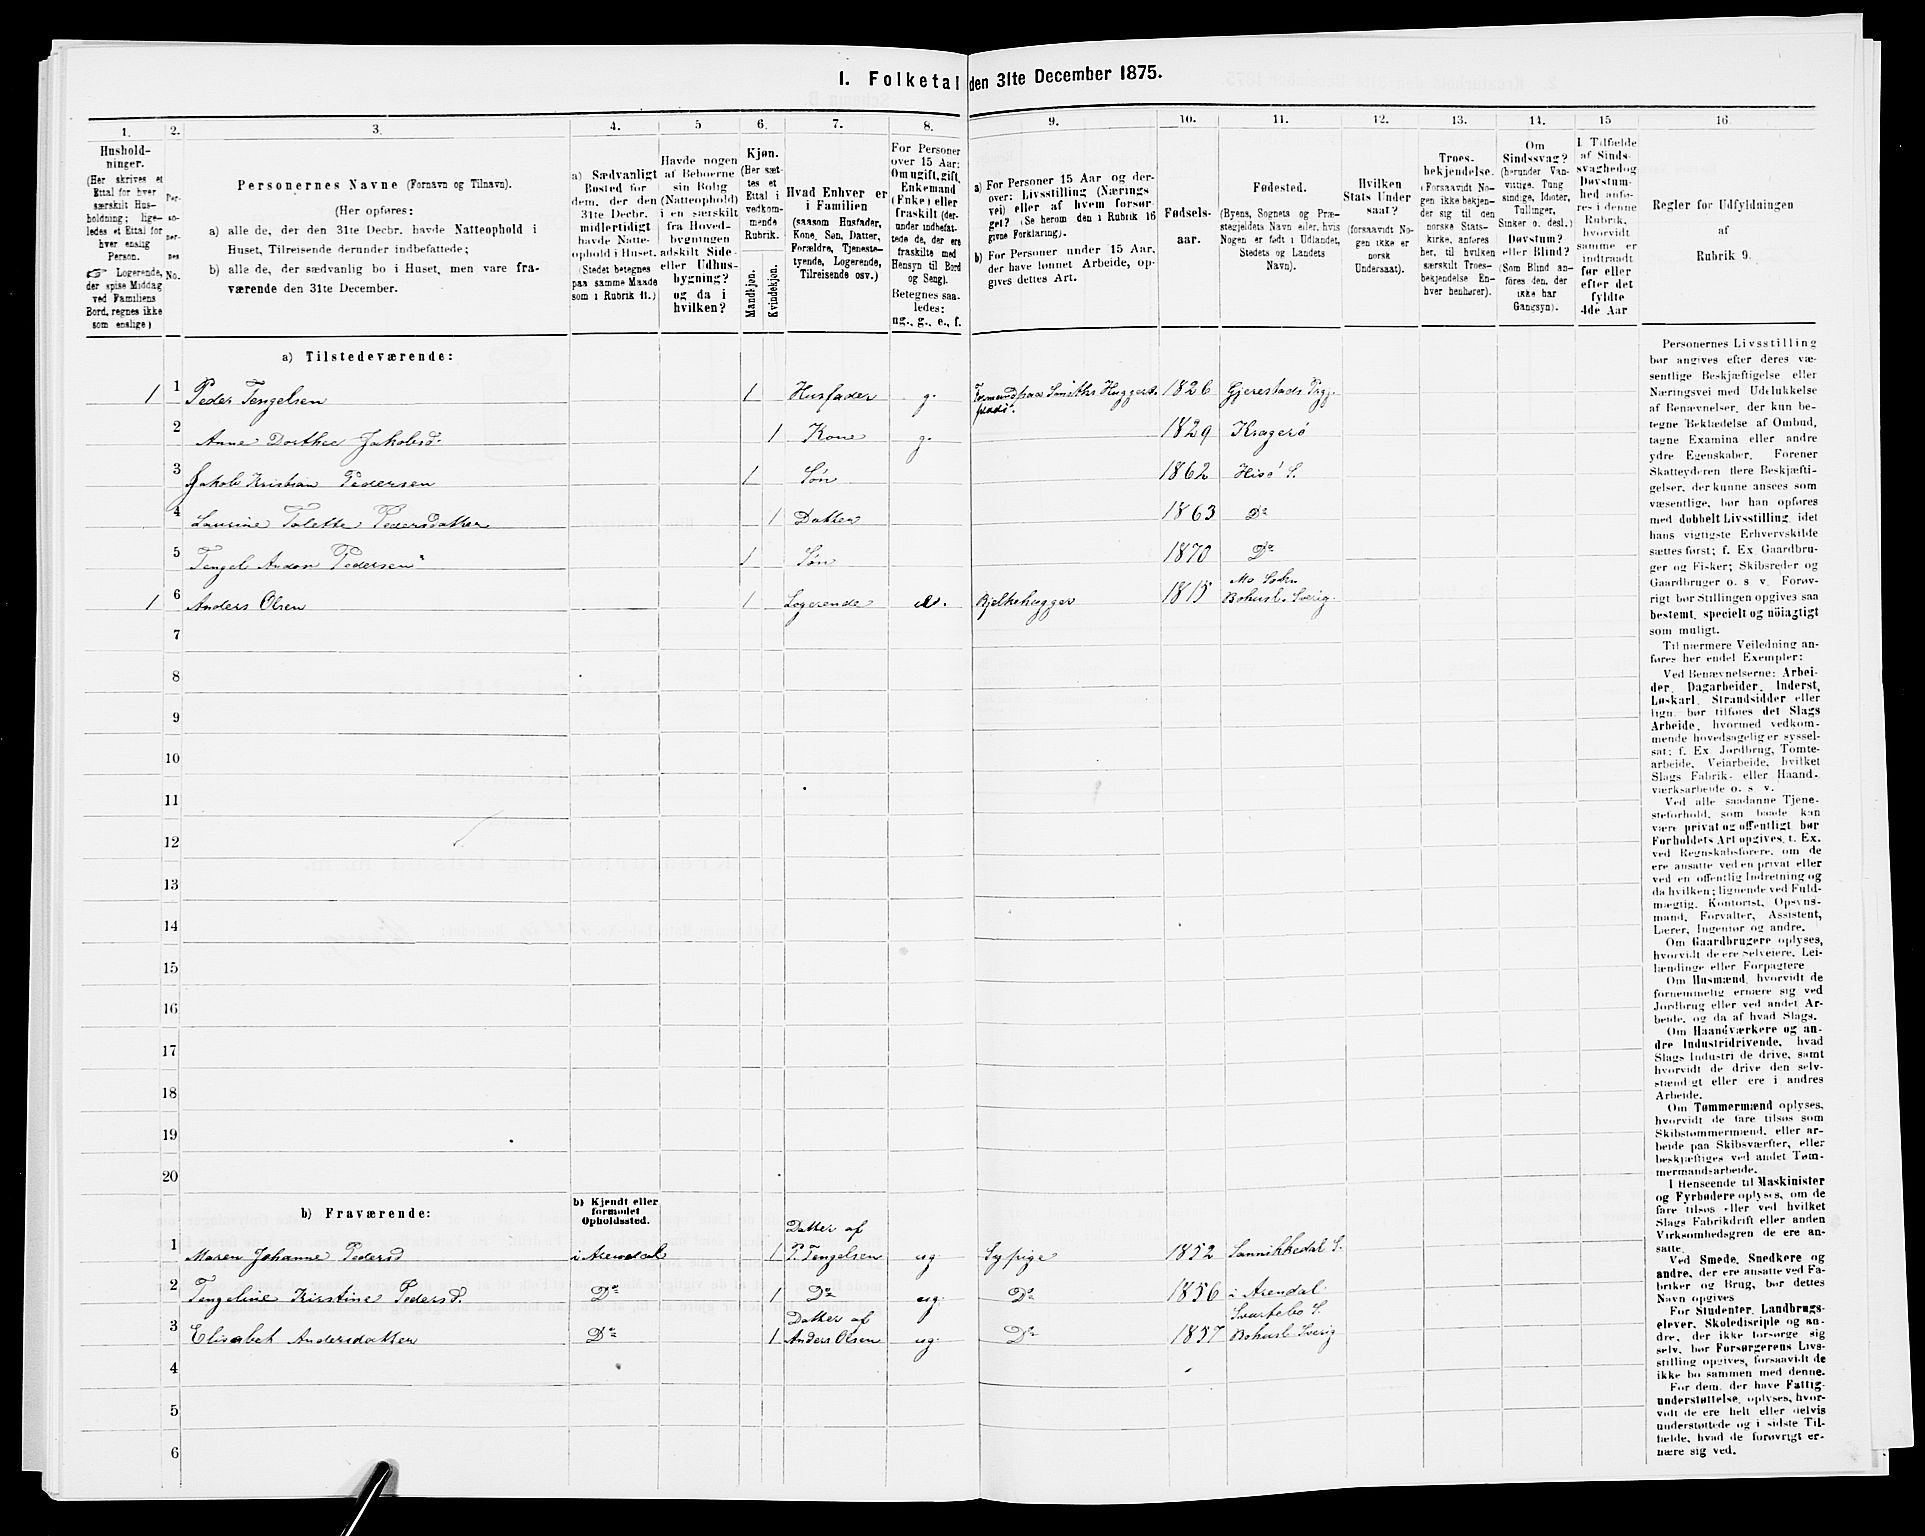 I. Folketal den 31te December 1875.
1. 2. 3. 4. 5 6. 7. 8. 9. 10. 11. 12. 13. 14. 15 16.
Hushold-
ninger.
(Her skrives et
Ettal for hver
særskilt Hus-
holdning; lige-
ledes et Ettal for
hver enslig
Person.
☞ Logerende,
der spise Middag
ved Familiens
Bord, regnes ikke
som enslige)
Per-
so-
ner-
nes
No.
Personernes Navne (Fornavn og Tilnavn).
(Her opføres:
a) alle de, der den 31te Decbr. havde Natteophold i
Huset, Tilreisende derunder indbefattede;
b) alle de, der sædvanlig bo i Huset, men vare fra-
værende den 31te December.
a) Sædvanligt
Bosted for
dem, der den
31te Decbr.
midlertidigt
havde Natte-
ophold i Huset.
(Stedet betegnes
paa samme Maade
som i Rubrik 11.)
Havde nogen
af Beboerne
sin Bolig
(Natteophold)
i en særskilt
fra Hoved-
bygningen
adskilt Side-
eller Udhus-
bygning?
og da i
hvilken?
Kjøn.
(Her sæt-
tes et
Ettal i
vedkom-
mende
Rubrik.
Mandkjøn.
Kvindekjøn.
Hvad Enhver er
i Familien
(saasom Husfader,
Kone, Søn, Datter,
Forældre, Tjeneste-
tyende, Logerende,
Tilreisende osv.)
For Personer
over 15 Aar:
Om ugift, gift,
Enkemand
(Enke) eller
fraskilt (der-
under indbefat-
tede de, der ere
fraskilte med
Hensyn til Bord
og Seng).
Betegnes saa-
ledes:
ug., g., e., f.
a) For Personer 15 Aar og der-
over: Livsstilling (Nærings
vei) eller af hvem forsør-
get? (Se herom den i Rubrik 16
givne Forklaring).
b) For Personer under 15 Aar,
der have lønnet Arbeide, op-
gives dettes Art.
Fødsels-
aar.
Fødested.
(Byens, Sognets og Præ-
stegjeldets Navn eller, hvis
Nogen er født i Udlandet,
Stedets og Landets
Navn).
Hvilken
Stats Under
saat?
(forsaavidt No-
gen ikke er
norsk
Undersaat).
Troes-
bekjendelse.
(Forsaavidt No-
gen ikke bekjen-
der sig til den
norske Stats-
kirke, anføres
her, til hvilken
særskilt Troes-
bekjendelse En-
hver henhører).
Om
Sindssvag?
(herunder Van-
vittige, Tung
sindige, Idioter,
Tullinger,
Sinker o. desl.)
Døvstum?
eller Blind?
(Som Blind an-
føres den, der
ikke har
Gangsyn).
I Tilfælde
af Sinds-
svaghed og
Døvstum-
hed anfø-
res i denne
Rubrik,
hvorvidt
samme er
indtraadt
før eller
efter det
fyldte
4de Aar
Regler for Udfyldningen
af
Rubrik 9.
a) Tilstedeværende:
1 1 Peder Tengelsen 1 Husfader g. Formand paa Smiths Huggeri- 1826 Gjerestads Prgj.
plads.
2 Anne Dorthea Jakobsd. 1 Kone g. 1829 Kragerø
3 Jakob Kristian Pedersen 1 Søn 1862 Hisø S.
4 Laurine Tolette Pedersdatter 1 Datter 1863 Do
5 Tengel Andon Pedersen 1 Søn 1870 Do
6 Mo Sokn
1 Anders Olsen 1 Logerende e. Bjelkehugger 1815 Bohusl. Sverig.
7
8
9
10
11
12
13
14
15
16
17
18
19
20
b) Fraværende:
b) Kjendt eller
formodet
Opholdssted.
Datter af
1 Maren Johanne Pedersd i Arendal 1 P. Tengelsen ug Sypige 1852 Sannikkedal S.
2 Tengeline Kirstine Pedersd. Do 1 Do ug. Do 1856 i Arendal
Datter af Svartebo S.
3 Elisabet Andersdatter Do 1 Anders Olsen ug. Do 1857 Bohusl Sverig
4
5
6
Personernes Livsstilling
bør angives efter deres væ-
sentlige Beskjæftigelse eller
Næringsvei med Udelukkelse
af Benævnelser, der kun be-
tegne Beklædelse af Ombud,
tagne Examina eller andre
ydre Egenskaber. Forener
Skatteyderen flere Beskjæfti-
gelser, der kunne ansees som
væsentlige, bør han opføres
med dobbelt Livsstilling, idet
hans vigtigste Erhvervskilde
sættes først; f. Ex Gaardbru-
ger og Fisker; Skibsreder og
Gaardbruger o. s v. Forøv-
rigt bør Stillingen opgives saa
bestemt, specielt og nöiagtigt
som muligt.
Til nærmere Veiledning an-
føres her endel Exempler:
Ved Benævnelserne: Arbei-
der, Dagarbeider, Inderst,
Løskarl, Strandsidder eller
lign. bør tilføies det Slags
Arbeide, hvormed vedkom-
mende hovedsagelig er syssel-
sat; f. Ex Jordbrug, Tomte-
arbeide, Veiarbeide, hvilket
Slags Fabrik- eller Haand-
værksarbeide o. s v.
Ved alle saadanne Tjene-
steforhold, som baade kan
være privat og offentligt bør
Forholdets Art opgives, t. Ex.
ved Regnskabsførere, om de
ere ansatte ved en privat eller
ved en offentlig Indretning og
da hvilken; lignende ved Fuld-
mægtig, Kontorist, Opsyns-
mand, Forvalter, Assistent,
Lærer, Ingeniør og andre.
Om Gaardbrugere oplyses,
hvorvidt de ere Selveiere, Lei-
lændinge eller Forpagtere
Om Husmænd, hvorvidt de
fornemmelig ernære sig ved
Jordbrug eller ved andet Ar-
beide, og da af hvad Slags.
Om Haandværkere og an-
dre Industridrivende, hvad
Slags Industri de drive, samt
hvorvidt de drive den selv-
stændigt eller ere i andres
Arbeide.
Om Tømmermænd oplyses,
hvorvidt de fare tilsøs som
Skibstømmermænd, eller ar-
beide paa Skibsværfter, eller
beskjæftiges ved andet Tøm-
mermandsarbeide.
I Henseende til Maskinister
og Fyrbødere oplyses, om de
fare tilsøs eller ved hvilket
Slags Fabrikdrift eller anden
Virksomhedsgren de ere an-
satte.
Ved Smede, Snedkere og
andre, der ere ansatte ved Fa-
briker og Brug, bør dettes
Navn opgives
For Studenter, Landbrugs-
elever, Skoledisciple og an-
dre, der ikke forsørge sig
selv, bør Forsørgerens Livs-
stilling opgives, forsaavidt de
ikke bo sammen med denne.
For dem, der have Fattig-
understøttelse, oplyses, hvor-
vidt de ere helt eller delvis
understøttede og i sidste Til-
fælde, hvad de forøvrigt er-
nære sig ved.